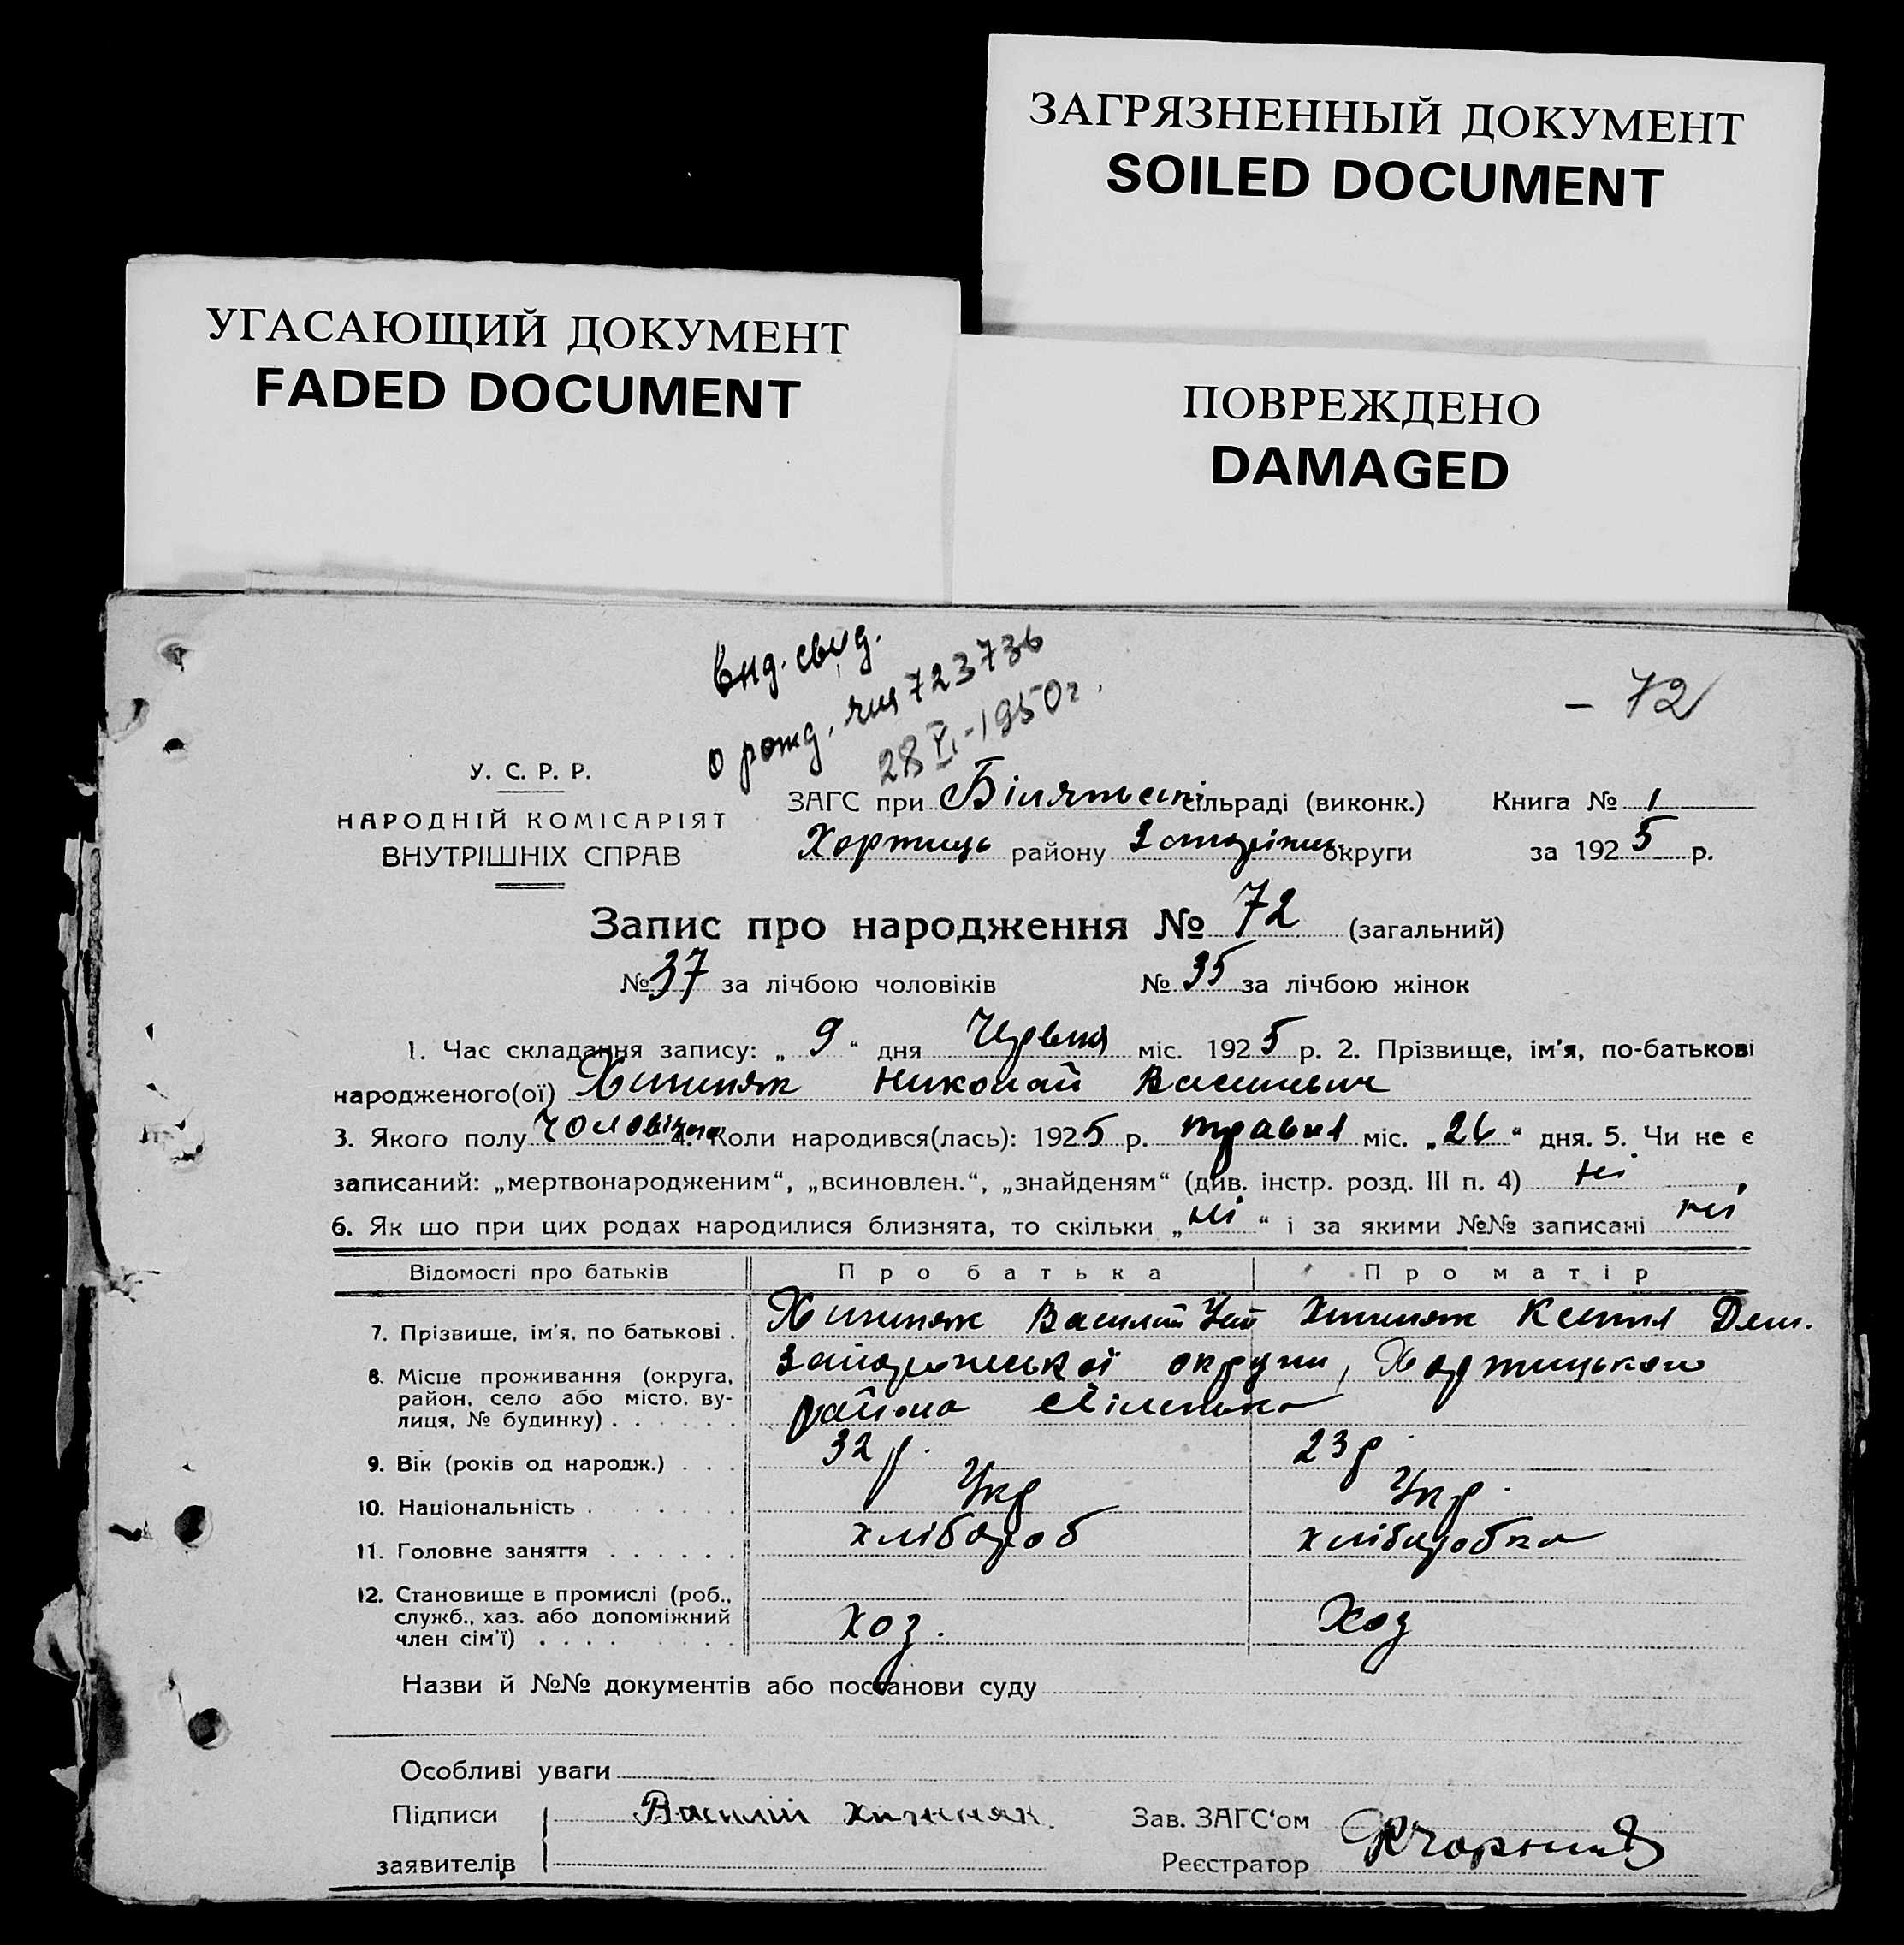 ЗАГРЯЗНЕННЫЙ ДОКУМЕНТ
SOILED DOCUMENT
УГАСАЮЩИЙ ДОКУМЕНТ
FADED DOCUMENT
ПОВРЕЖДЕНО
DAMAGED
Выд. свид.
о рожд. 723736
28 1950г.
— 72
У. С. Р. Р.
НАРОДНІЙ КОМІСАРІЯТ
ВНУТРІШНІХ СПРАВ
ЗАГС при сільраді (виконк.) Книга № 1
Хортиць району Запоріжь округи за 1925 р.
Запис про народження № 72 (загальний)
№ 37 за лічбою чоловіків № 35 за лічбою жінок
1. Час складання запису: „ 9 “ дня Червня міс. 1925 р. 2. Прізвище, ім'я, по-батькові
народженого(ої) Хижняк Николай Васильевич
3. Якого полу чоловіча 4. Коли народився(лась): 1925 р. травня міс. „26“ дня. 5. Чи не є
записаний: „мертвонародженим“, „всиновлен.“, „знайденям“ (див. інстр. розд. III п. 4) ні
6. Як що при цих родах народилися близнята, то скільки „ні“ і за якими №№ записані ні
Відомості про батьків Про батька Про матір
7. Прізвище, ім'я, по батькові . Хижняк Василий Хижняк Ксения Дем.
8. Місце проживання (округа, район, село або місто, вулиця, № будинку) . . . . . . Запорожської округи, Хортицького
района Біленька
9. Вік (років од народж.) . . . 32 р. 23 р.
10. Національність . . . . . . . Укр Укр.
11. Головне заняття . . . . . . хлібороб хліборобка
12. Становище в промислі (роб., служб., хаз. або допоміжний член сім'ї) . . . . . . . . . хоз. Хоз
Назви й №№ документів або постанови суду
Особливі уваги
Підписи Василий Хижняк. Зав. ЗАГС'ом
заявителів Реєстратор